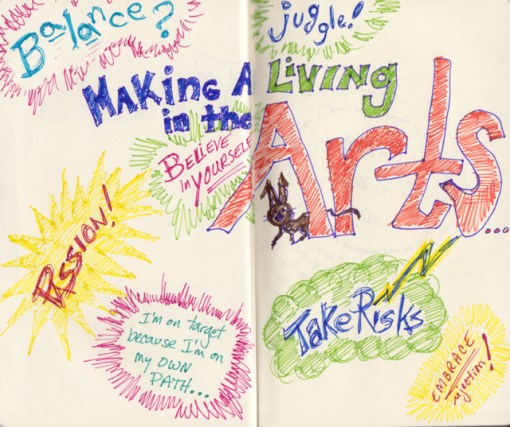 Balance?
juggle!
MAKiNG A LiViNG
in the Arts...
BELiEVE
in YOURSELF
PASSION!
TAKE RiSKS
I'm on target
because I'm on
my OWN
PATH...
EMBRACE
rejection!